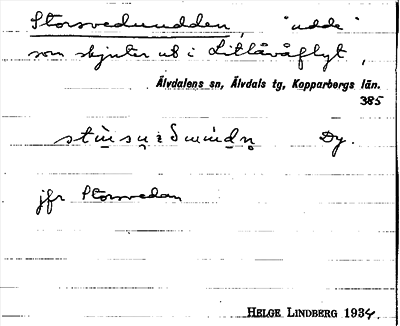 Storsvedundden, "udde"
som skjuter ut i Litlåvåflyt,
Älvdalens sn, Älvdals tg, Kopparbergs län.
385
Dy.
jfr Storsvedan
HELGE LINDBERG 1934.